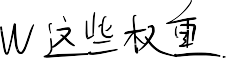 W 这些权重.